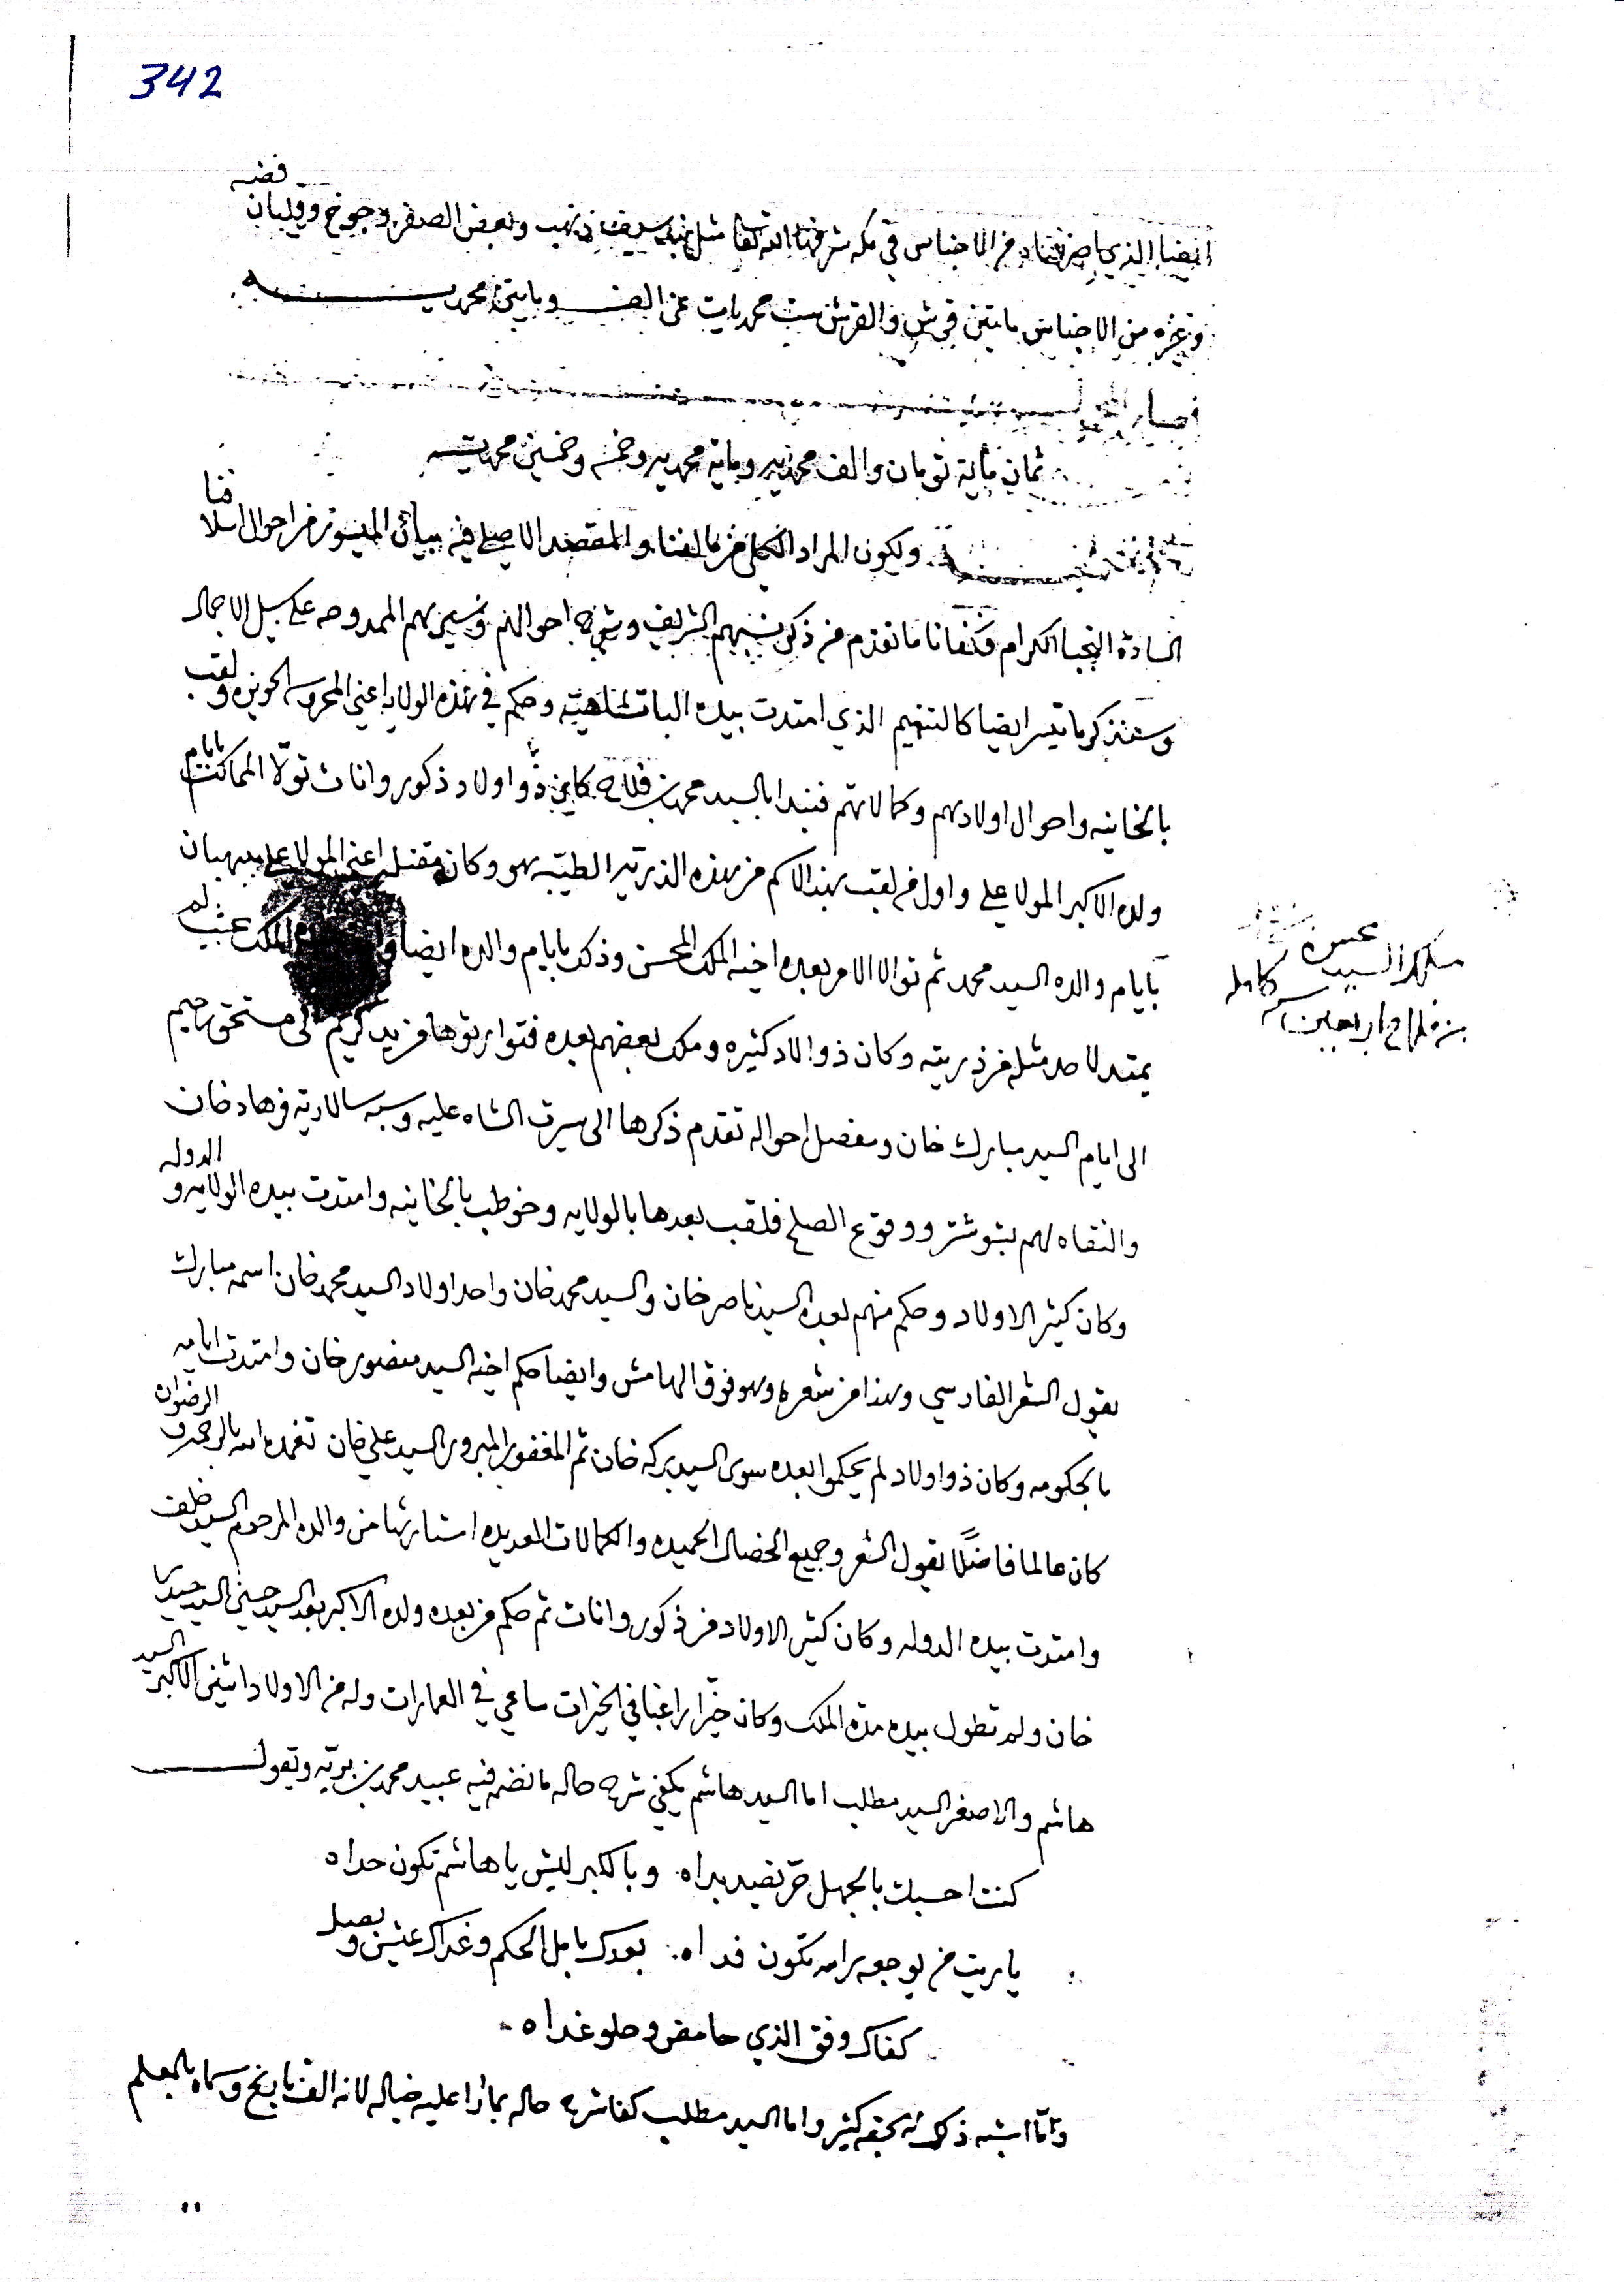 342
ايضا الذي من الاجناس في مكه شرفها الله تعالى مثل ذهب وبعض الصفر وجوخ وقلبان فضه
وغيره من الاجناس مايتين قرش والقرش ست محمديات عن الف ومايتين محمديه
فصار
ثمان مائة تومان والف محمديه وماية محمديه وخمسه وخمسين محمديه
ولكون المراد الكلي من تالفنا والمقصد الاصلي فيه بيان الميسور من احوال اسلافنا
السادة النجبا الكرام فكفانا ما تقدم من ذكر نسبهم الشريف وشرح احوالهم وسيرهم الممدوحه على سبيل الاجمال
وسنذكر ما تيسر ايضا كالتتميم الذي امتدت بيده وحكم في هذه الولايه اعني المحروسه الحويزه ولقب
بالخانيه واحوال اولادهم وكمالاتهم فنبدا بالسيد محمد بن فلاح كاين ذو اولاد ذكور واناث تولا الممالك بايام
ولده الاكبر المولا علي واول من لقب بهذا الاسم من هذه الذريه الطيبه هو وكان مقتله اعني المولا علي ببهبهان
بايام والده السيد محمد ثم توالا الامر بعده اخيه الملك المحسن وذلك بايام والده ايضا الملك بحيث لم
يمتد لاحد مثله من ذريته وكان ذو اولاد كثيره وملك بعضهم بعده فتوارثوها من يد كريم الى مستحق رحيم
الى ايام السيد مبارك خان ومفصل احواله تقدم ذكرها الى سيرت الشاه عليه وسبه سالاريه فرهاد خان
والتقاه لهم بتوشتر ووقوع الصلح فلقب بعدها بالولايه وخوطب بالخانيه وامتدت بيده الولايه والدوله
وكان كثير الاولاد وحكم منهم بعده السيد ناصر خان والسيد محمد خان واحد اولاد السيد محمد خان اسمه مبارك
يقول الشعر الفارسي وهذا من شعره وهو فوق الهامش وايضا حكم اخيه السيد منصور خان وامتدت ايامه
بالحكومه وكان ذو اولاد لم يحكموا بعده سوى السيد بركه خان ثم المغفور المبرور السيد علي خان تغمده الله بالرحمه والرضوان
كان عالما فاضلًا يقول الشعر وجميع الخصال الحميده والكمالات العديده استارثها من والده المرحوم السيد خلف
وامتدت بيده الدوله وكان كثير الاولاد من ذكور واناث ثم حكم من بعده ولده الاكبر بعد السيد حسين السيد حيدر
خان ولم تطول بيده مدة الملك وكان خيّرا راغبا في الخيرات ساعي في العمارات وله من الاولاد اثنين الاكبر السيد
هاشم والاصغر السيد مطلب اما السيد هاشم يكفي شرح حاله ما نضم فيه عبيد محمد بن بريه ويقول
كنت احسبك بالجهل حرّ تصيد بداه وبالكبر ليش يا هاشم تكون حداه
ياريت من يوجعه راسه تكون فداه بعدك يامل الحكم وغداك عشن وبصل
كفاك وفق الذي حامض وحلو غداه
وامّا اشبه ذلك بحقه كثير واما السيد مطلب كفا شرح حاله بما راعليه خياله لانه الف تاريخ وسماه بالمعلم
ملك السيد محسن
بن فلاح اربعين سنه كامله